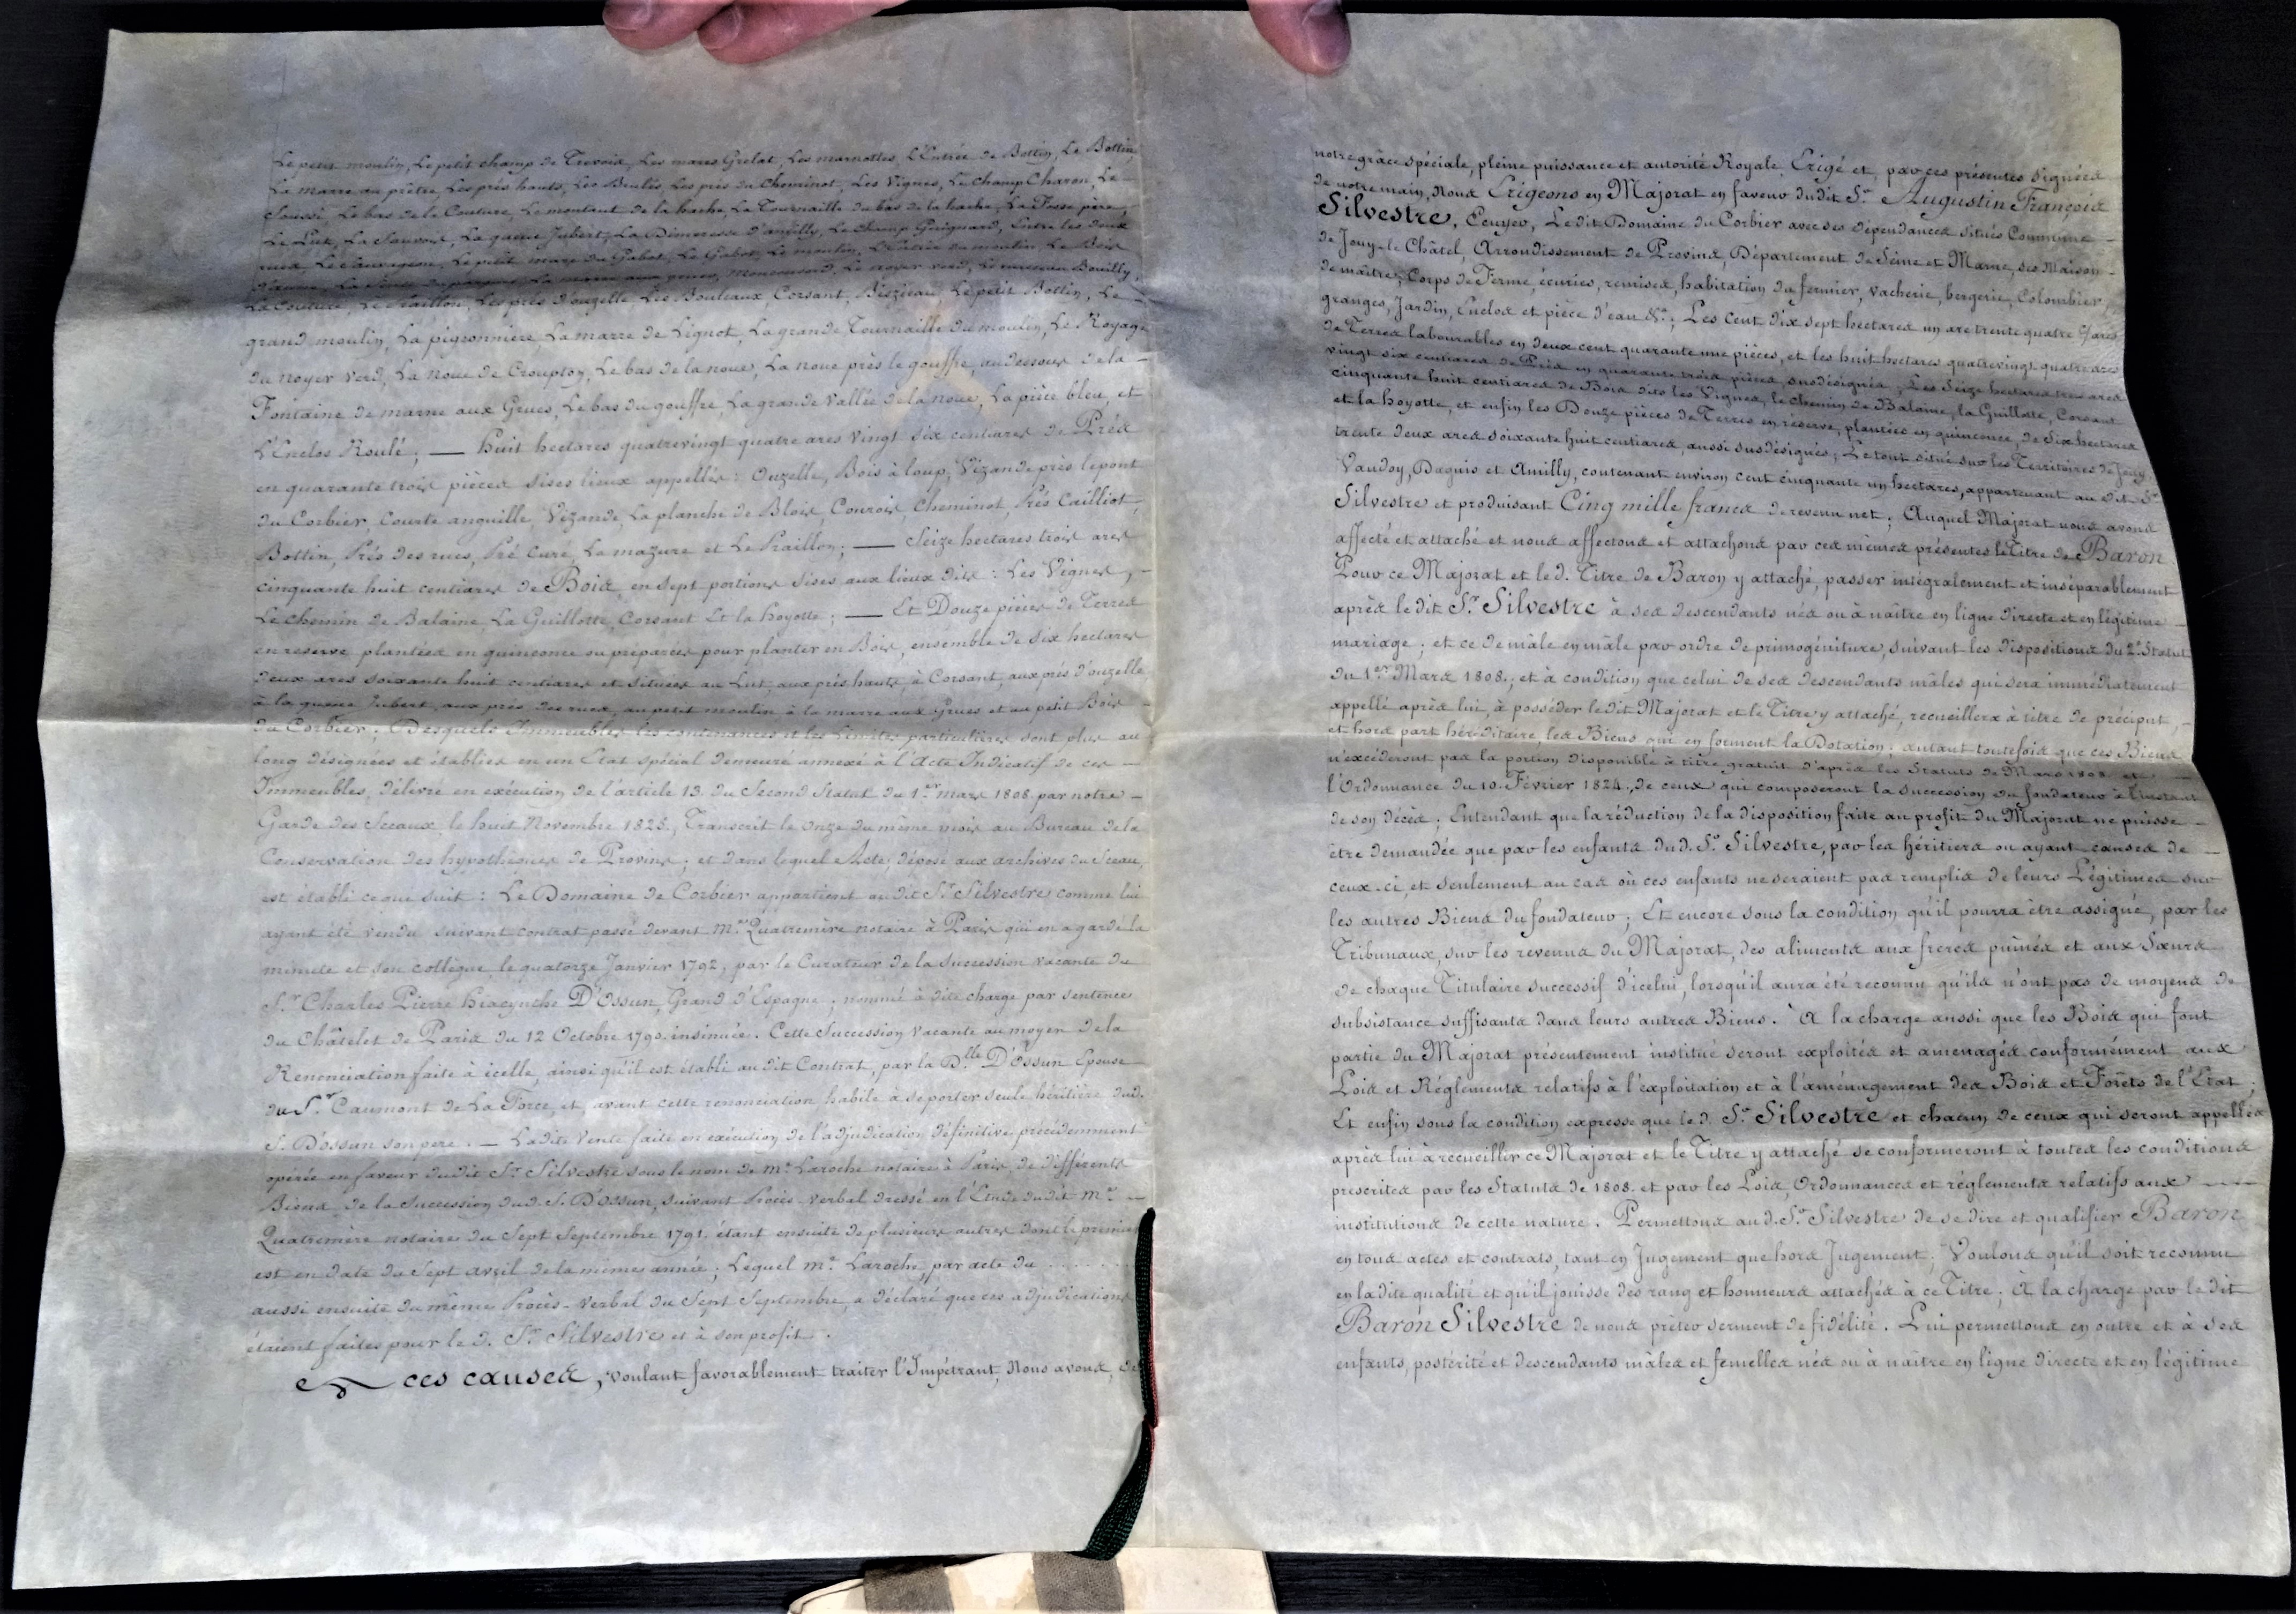 Le petit moulin, Le petit champ de Trevoix, Les mares Grelat, Les marnottes, L'Entrée de Bottin, Le Bottin,
La marre au prêtre, Les prés hauts, Les Brulés, Les prés du Cheminot, Les Vignes, Le Champ Charon, Le
Le bas de la Couture, Le montant de la hache, La Tournaille du bas de la hache, La Fosse
Le Lut, La Sauvois, La queue Jubert, La Dimeresse d'amilly, Le Champ Guignard, Entre les deux
rues, Le Sauvageon, Le petit mare du Gabot, Le Gabot, Le moulin, L'Entrée du moulin, Le Bois
La marre aux grues, Le noyer verd, Le Bouilly,
La Couture, Le Praillon, Les prés d'ouzelle Les Bouleaux, Corsant, Le petit Bottin, Le
grand moulin, La pigeonnière, La marre de Lignot, La grande Tournaille du moulin, Le Royage
du noyer verd, La noue de Croupton, Le bas de la noue, La noue près le gouffre, au dessous de la
Fontaine de marne aux Grues, Le bas du gouffre, La grande Vallée de la noue, La pièce bleu, et
L'Enclos Roulé ; — huit hectares quatrevingt quatre ares vingt six centiares de Prés
en quarante trois pièces sises lieux appellés : Ouzelle, Bois à loup, Vizande près le pont
du Corbier, Courte anguille, Vizande, La planche de Blois, Couroir, Cheminot, Prés Cailliot,
Bottin, Prés des rues, Pré Curé, La mazure et Le Praillon ; — Seize hectares trois ares
cinquante huit centiares de Bois, en sept portions sises aux lieux dits : Les Vignes,
Le chemin de Balaine, La Guillotte, Corsant Et la hoyotte ; — Et Douze pièces de Terres
en reserve plantées en quinconce ou préparées pour planter en Bois, ensemble de six hectares
deux ares soixante huit centiares et situées au Lut, aux prés hauts, à Corsant, aux prés d'ouzelle
à la queue Jubert, aux prés des rues, au petit moulin à la marre aux Grues et au petit Bois
du Corbier ; Desquels Immeubles les contenances et les Limites particulières sont plus au
long désignées et établies en un Etat spécial demeuré annexé à l'Acte Indicatif de ces
Immeubles, délivré en exécution de l'article 13. du Second Statut du 1er mars 1808 par notre
Garde des Sceaux, le huit Novembre 1825., Transcrit le Onze du même mois au Bureau de la
Conservation des hypothèques de Provins ; et dans lequel Acte, déposé aux archives du Sceau,
est établi ce que suit : Le Domaine de Corbier appartient au dit Sr. Silvestre comme lui
ayant été vendu suivant contrat passé devant Me. Quatremère notaire à Paris qui en a gardé la
minute et son collègue, le quatorze Janvier 1792, par le Curateur de la Succession vacante du
Sr. Charles Pierre hiacynthe D'Ossun, Grand d'Espagne ; nommé à dite charge par sentence
du Châtelet de Paris du 12 Octobre 1790. insinuée. Cette Succession vacante au moyen de la
Renonciation faite à icelle, ainsi qu'il est établi au dit Contrat, par la Dlle. D'Ossun Epouse
du Sr. Caumont de La Force, et, avant cette renonciation habile à se porter seule héritière dud.
S. D'ossun son père. — Ladite Vente faite en exécution de l'adjudication définitive précédemment
opérée en faveur dudit Sr. Silvestre sous le nom de Me. Laroche notaire à Paris, de différents
Biens, de la Succession dud. S. D'ossun, suivant Procès-verbal dressé en l'Etude dudit Me.
Quatremère notaire du Sept Septembre 1791. étant ensuite de plusieurs autres dont le premier
est en date du Sept avril de la même année ; Lequel Me. Laroche, par acte du . . . . . .
aussi ensuite du même Procès-verbal du Sept Septembre, a déclaré que ces adjudications
étaient faites pour le d. Sr. Silvestre et à son profit.
ces causes, voulant favorablement traiter l'Impétrant, Nous avons, de
notre grâce spéciale, pleine puissance et autorité Royale, Erigé et, par ces présentes signées
de notre main, Nous Erigeons en Majorat en faveur du dit Sr. Augustin François
Silvestre, Ecuyer, Le dit Domaine du Corbier avec ses dépendances situés Commune
de Jouy-le Châtel, Arrondissement de Provins, Département de Seine et Marne, ses Maison
de maître, Corps de Ferme, écuries, remises, habitation du fermier, vacherie, bergerie, Colombier,
granges, Jardin, Enclos et pièce d'eau &a. ; Les cent dix sept hectares un are trente quatre Cares
de Terres labourables en deux cent quarante une pièces, et les huit hectares quatrevingt quatre ares
vingt six centiares de Prés en quarante trois pièces susdésignées ; Les Seize hectares trois ares
cinquante huit centiares de Bois dits les Vignes, le chemin de Balaine, la Guillotte, Corsant
et la hoyotte, et enfin les Douze pièces de Terres en réserve, plantées en quinconce, de Six hectares
trente deux ares soixante huit centiares, aussi susdésignés ; Le tout situé sur les Territoires de Jouy,
Vaudoy, Dagnis et Amilly, contenant environ cent cinquante un hectares, appartenant au dit Sr.
Silvestre et produisant Cinq mille francs de revenu net ; Auquel Majorat nous avons
affecté et attaché et nous affectons et attachons par ces mêmes présentes le Titre de Baron
Pour ce Majorat et le d. Titre de Baron y attaché, passer intégralement et inséparablement
après le dit Sr. Silvestre à ses descendants nés ou à naître en ligne directe et en légitime
mariage ; et ce de mâle en mâle par ordre de primogéniture, suivant les dispositions du 2e. Statut
du 1er. Mars 1808., et à condition que celui de ses descendants mâles qui sera immédiatement
appellé après lui, à posséder le dit Majorat et le Titre y attaché, recueillera à titre de préciput,
et hors part héréditaire, les Biens qui en forment la Dotation ; autant toutefois que ces Biens
n'excéderont pas la portion disponible à titre gratuit d'après les Statuts de Mars 1808 et
l'Ordonnance du 10. Février 1824., de ceux qui composeront la succession du fondateur à l'instant
de son décès ; Entendant que la réduction de la disposition faite au profit du Majorat ne puisse
être demandée que par les enfants du d. Sr. Silvestre, par les héritiers ou ayant causes de
ceux-ci, et seulement au cas où ces enfants ne seraient pas remplis de leurs Légitimes sur
les autres Biens du fondateur ; Et encore sous la condition qu'il pourra être assigné, par les
Tribunaux, sur les revenus du Majorat, des aliments aux freres puinés et aux Sœurs
de chaque Titulaire successif d'icelui, lorsqu'il aura été reconnu qu'ils n'ont pas de moyens de
subsistance suffisants dans leurs autres Biens. A la charge aussi que les Bois qui font
partie du Majorat présentement institué seront exploités et aménagés conformément aux
Lois et Réglements relatifs à l'exploitation et à l'aménagement des Bois et Forêts de l'Etat ;
Et enfin sous la condition expresse que le d. Sr. Silvestre et chacun de ceux qui seront appellés
après lui à recueillir ce Majorat et le Titre y attaché se conformeront à toutes les conditions
prescrites par les Statuts de 1808. et par les Lois, Ordonnances et réglements relatifs aux
institutions de cette nature. Permettons au d. Sr. Silvestre de se dire et qualifier Baron
en tous actes et contrats, tant en Jugement que hors Jugement ; Voulons qu'il soit reconnu
en la dite qualité et qu'il jouisse des rang et honneurs attachés à ce Titre ; A la charge par le dit
Baron Silvestre de nous prêter serment de fidélité. Lui permettons en outre et à ses
enfants, postérité et descendants mâles et femelles nés ou à naître en ligne directe et en légitime